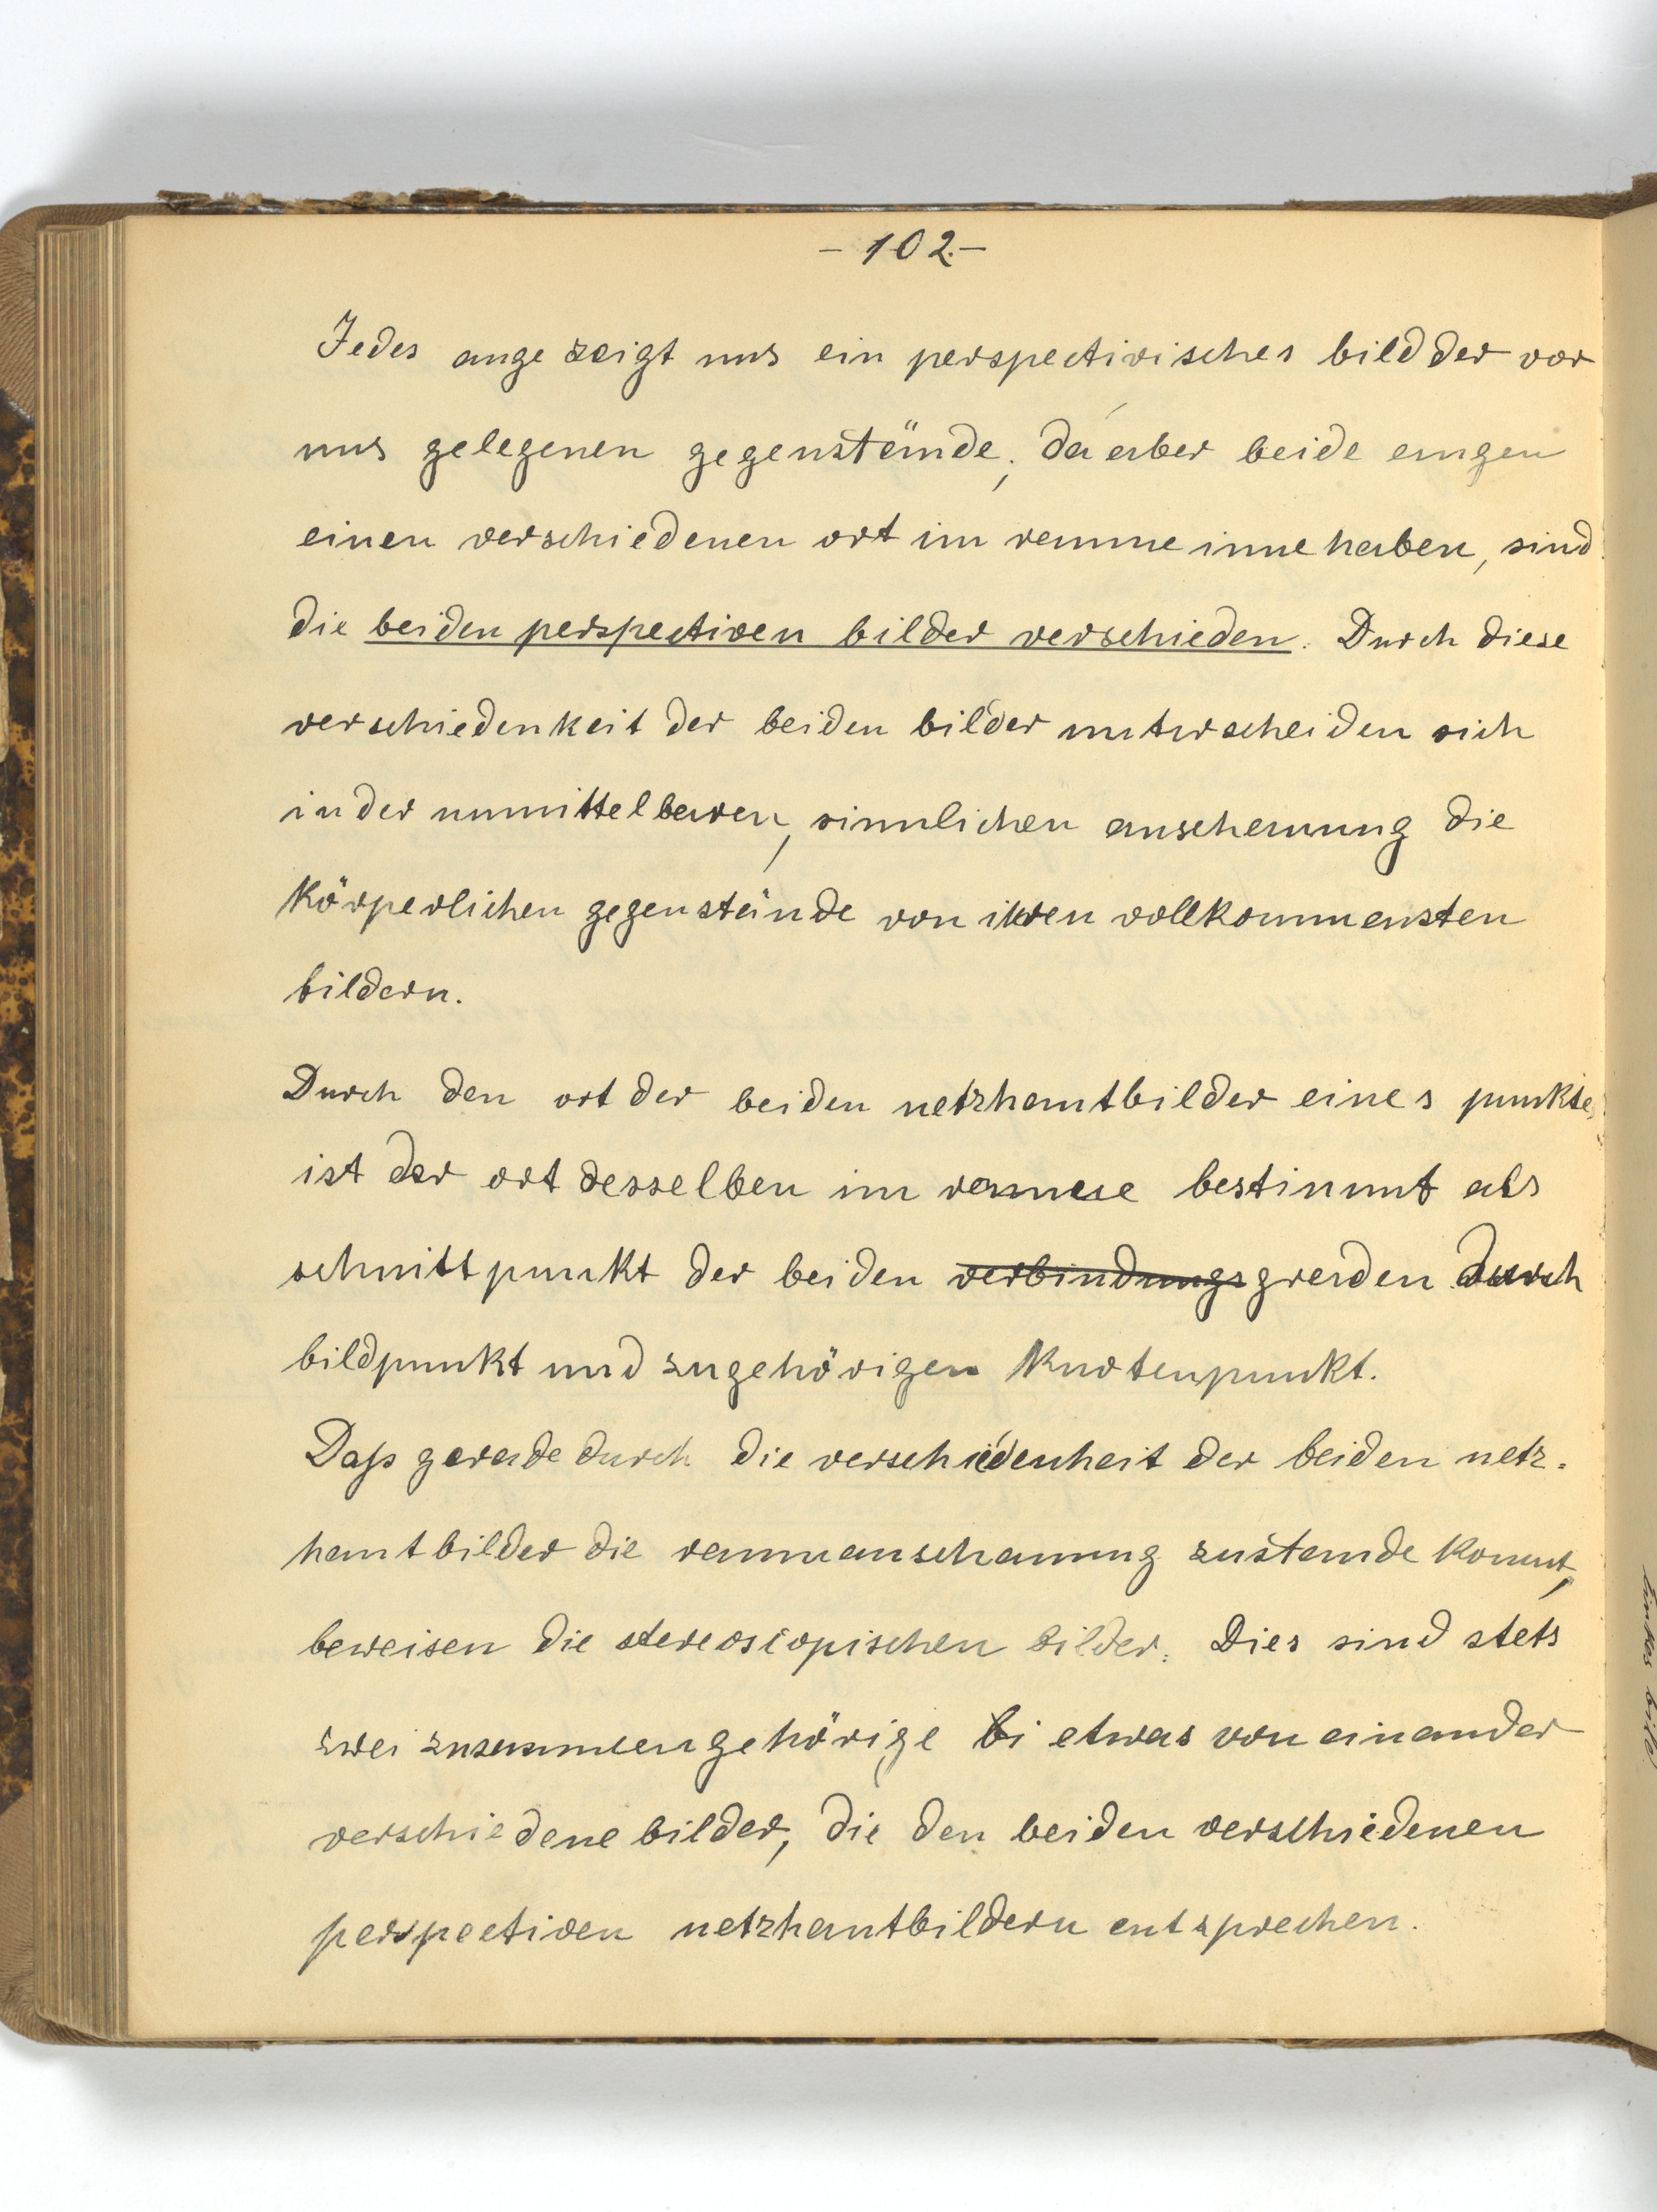 - 102. -
Jedes auge zeigt uns ein perspectivisches bild der vor
uns gelegenen gegenstände; da aber beide augen
einen verschiedenen ort im raume inne haben, sind
die beiden perspectiven bilder verschieden. Durch diese
verschiedenkeit der beiden bilder unterscheiden sich
in der unmittelbaren, sinnlichen anschauung die
körperlichen gegenstände von ihren vollkommensten
bildern.
Durch den ort der beiden netzhautbilder eines punktes
ist der ort desselben im raume bestimmt als
schnittpunkt der beiden verbindungsgraden durch
bildpunkt und zugehörigen Knotenpunkt.
Daß gerade durch die verschiedenheit der beiden netz-
hautbilder die raumanschauung zustande kommt,
beweisen die stereoscopischen bilder. Dies sind stets
zwei zusammengehörige bi etwas von einander
verschiedene bilder, die den beiden verschiedenen
perspectiven netzhautbildern entsprechen.